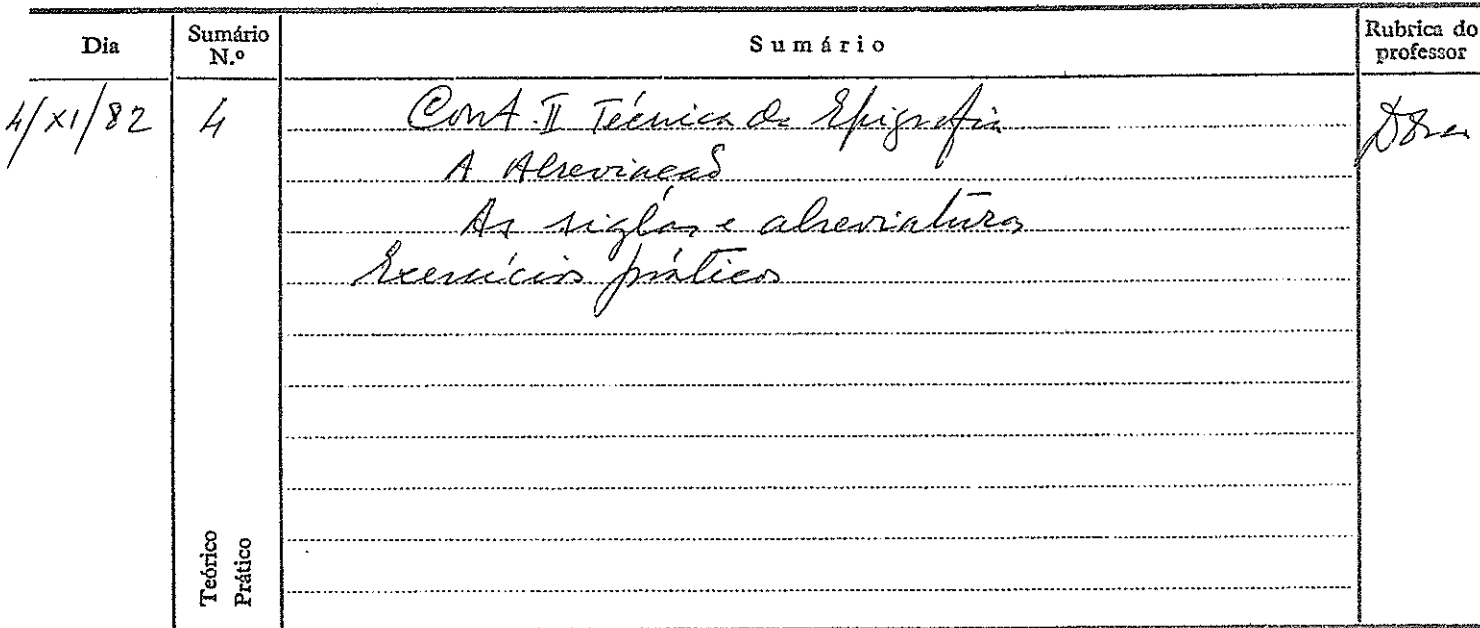 Dia
Sumário N.º
Sumário
Rubrica do professor
4/XI/82
4
Cont. II Técnica da Epigrafia
A Abreviação
As siglas e abreviaturas
Exercícios práticos
Teórico
Prático